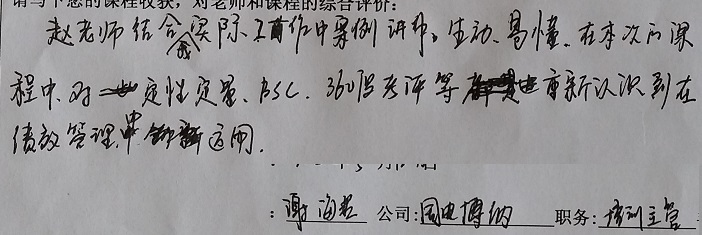 请写下您的课程收获，对老师和课程的综合评价：
赵老师结合实际工作中案例讲师，生动、易懂。在本次的课
程中，对定性定量、BSC、360度考评等重新认识到在
绩效管理中运用.
：谢海 公司：国电博纳 职务：培训主管